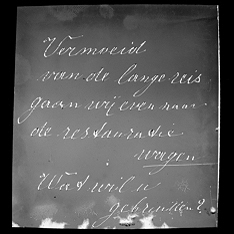 Vermoeid
van de lange reis
gaan wij even naar
de restauratie
wagen
Wat wil u
gebruiken?